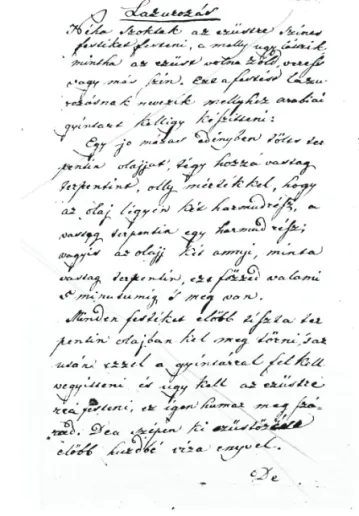 Lazurozás
Néha szoktak az ezüstre színes
festéket festeni, a melly ugy látszik
mintha az ezüst volna zöld veress
vagy más szín. Ezt a festést lazu-
rozásnak nevezik mellyhez arabiai
gyintart kelligy készitteni:
Egy jo mázas edényben tölts ter
pentin olajjat, tégy hozzá vastag
terpentint, olly mértékkel, hogy
az olaj légyen két harmadrész, a
vastag terpentin egy harmadrész;
vagyis az olajj két annyi, mint a
vastag terpentin, ezt főzzed valami
5 minutumig s meg van.
Minden festéket előbb tiszta ter
pentin olajban kel meg törni, 's az
után ezzel a gyintárral fel kell
vegyitteni és ugy kell az ezüstre
réa festeni, ez igen hamar meg szá-
rad. Dea szépen ki ezüstözött
előbb huzdbé viza enyvel.
De